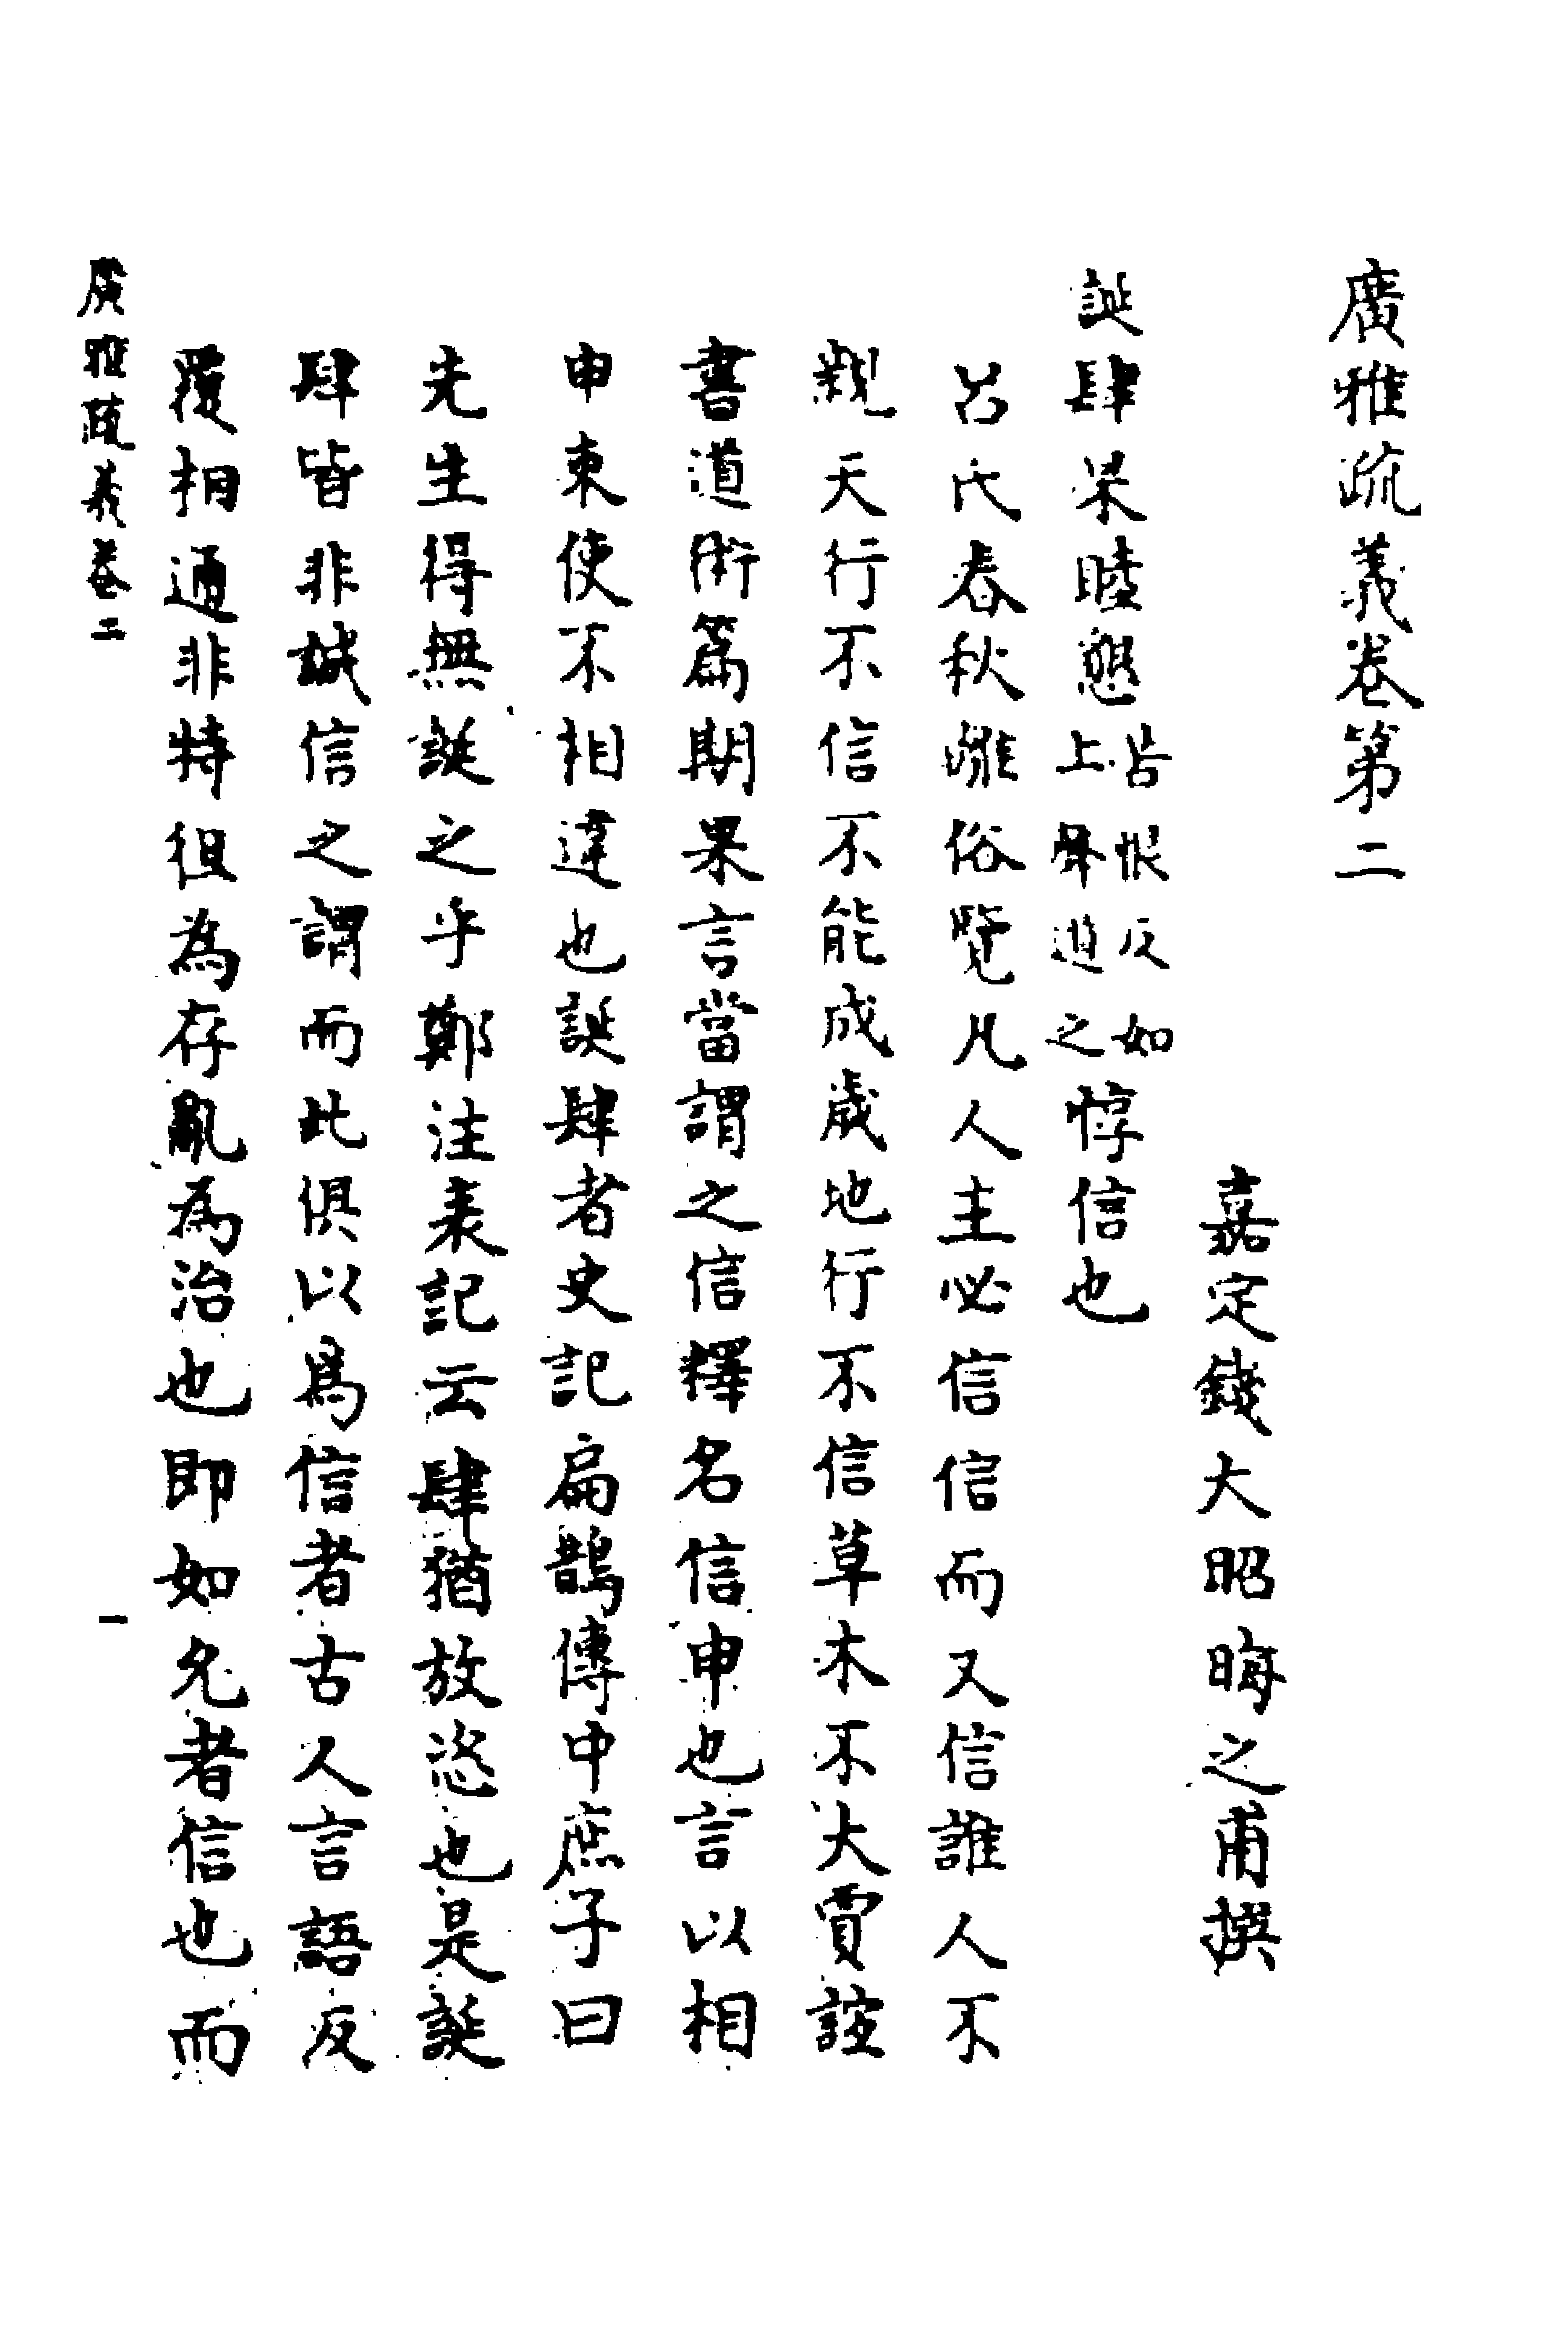 廣雅疏義卷第二
嘉定錢大昭晦之甫撰
誕肆杲睦懇苦恨反如上聲道之惇信也
呂氏春秋離俗覽凡人主必信信而又信誰人不
親天行不信不能成歲地行不信草木不大賈誼
書道術篇期果言當謂之信釋名信申也言以相
申束使不相違也誕肆者史記扁鵲傳中庶子曰
先生得無誕之乎鄭注表記云肆猶放恣也是誕
肆皆非誠信之謂而此俱以為信者古人言語反
覆相通非特徂為存亂為治也即如允者信也而
廣雅疏義卷二
一